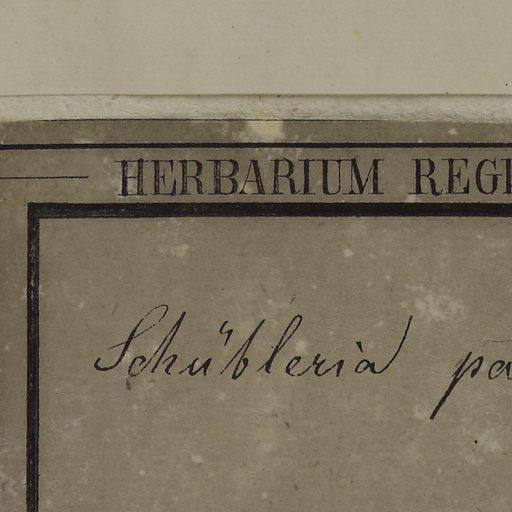 HERBARIUM REGI
Schübleria pa